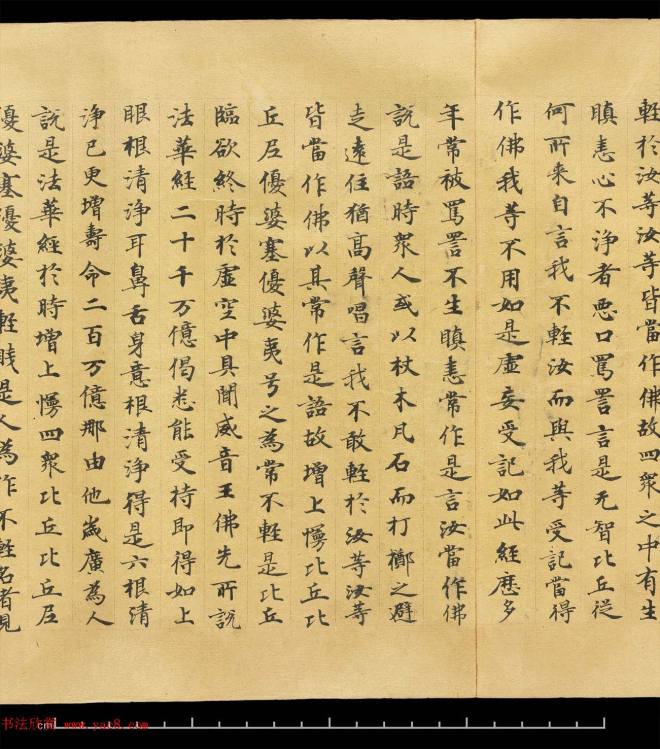 輕於汝等汝等皆當作佛故四衆之中有生
瞋恚心不淨者惡口罵詈言是无智比丘從
何所来自言我不輕汝而與我等受記當得
作佛我等不用如是虛妄受記如此經歷多
年常被罵詈不生瞋恚常作是言汝當作佛
說是語時衆人或以杖木凡石而打擲之避
走遠住猶高聲唱言我不敢輕於汝等汝等
皆當作佛以其常作是語故增上慢比丘比
丘尼優婆塞優婆夷号之為常不輕是比丘
臨欲終時於虛空中具聞威音王佛先所說
法華經二十千万億偈悉能受持即得如上
眼根清淨耳鼻舌身意根清淨得是六根清
淨已更增壽命二百万億那由他歲廣為人
說是法華經於時增上慢四衆比丘比丘尼
優婆塞優婆夷輕賎是人為作不輕名者見
书法欣赏 www.yac8.com
cm